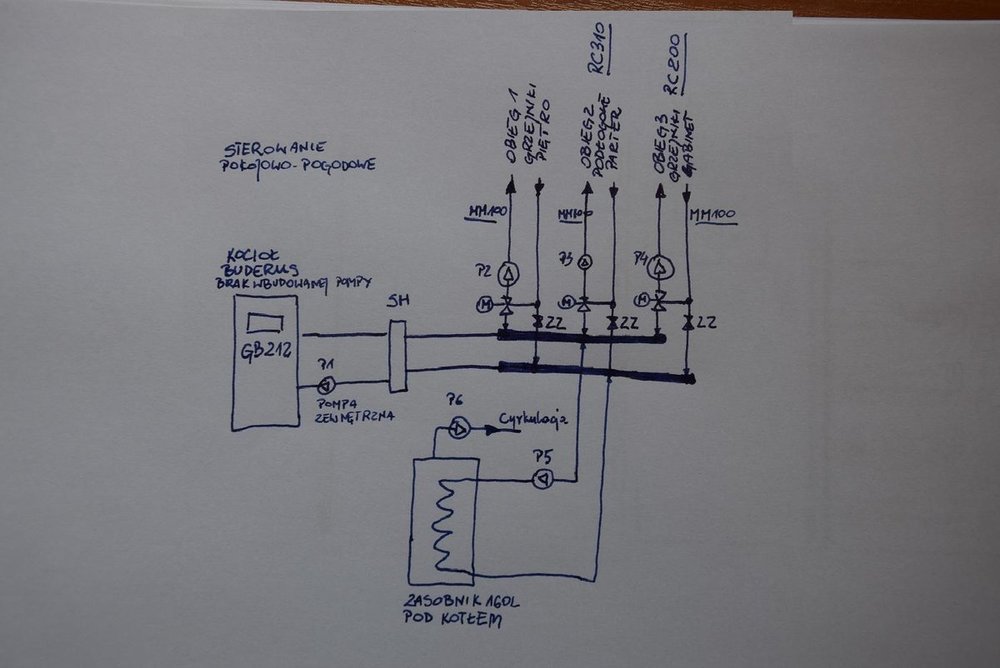 STEROWANIE
POKOJOWO-POGODOWE
OBIEG 1
GRZEJNIKI
PIĘTRO
OBIEG 2
PODŁOGOWE
PARTER
RC310
OBIEG 3
GRZEJNIKI
GABINET
RC200
MM100
MM100
MM100
KOCIOŁ
BUDERUS
BRAK WBUDOWANEJ POMPY
GB212
SH
P2
P3
P4
M
M
M
ZZ
ZZ
ZZ
P1
POMPA
ZEWNĘTRZNA
P6
Cyrkulacja
P5
ZASOBNIK 160L
POD KOTŁEM